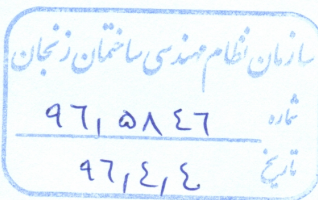 سازمان نظام مهندسی ساختمان زنجان
شماره ۹۶٫۵۸۴۶
تاریخ ۹۶٫۴٫۴